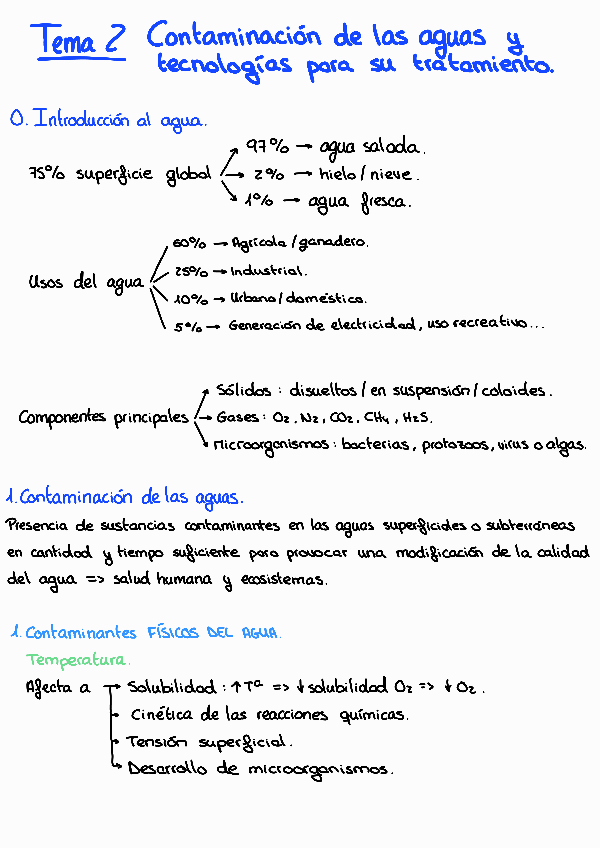 Tema 2 Contaminación de las aguas y
tecnologías para su tratamiento.
0. Introducción al agua.
75% superficie global
97% → agua salada.
2% → hielo / nieve.
1% → agua fresca.
Usos del agua
60% → Agrícola / ganadero.
25% → Industrial.
10% → Urbano / doméstico.
5% → Generación de electricidad, uso recreativo...
Componentes principales
Sólidos : disueltos / en suspensión / coloides.
Gases : O2, N2, CO2, CH4, H2S.
Microorganismos : bacterias, protozoos, virus o algas.
1. Contaminación de las aguas.
Presencia de sustancias contaminantes en las aguas superficiales o subterráneas
en cantidad y tiempo suficiente para provocar una modificación de la calidad
del agua => salud humana y ecosistemas.
1. Contaminantes FÍSICOS DEL AGUA.
Temperatura.
Afecta a → Solubilidad : ↑ Tª => ↓ solubilidad O2 => ↓ O2.
Cinética de las reacciones químicas.
Tensión superficial.
Desarrollo de microorganismos.